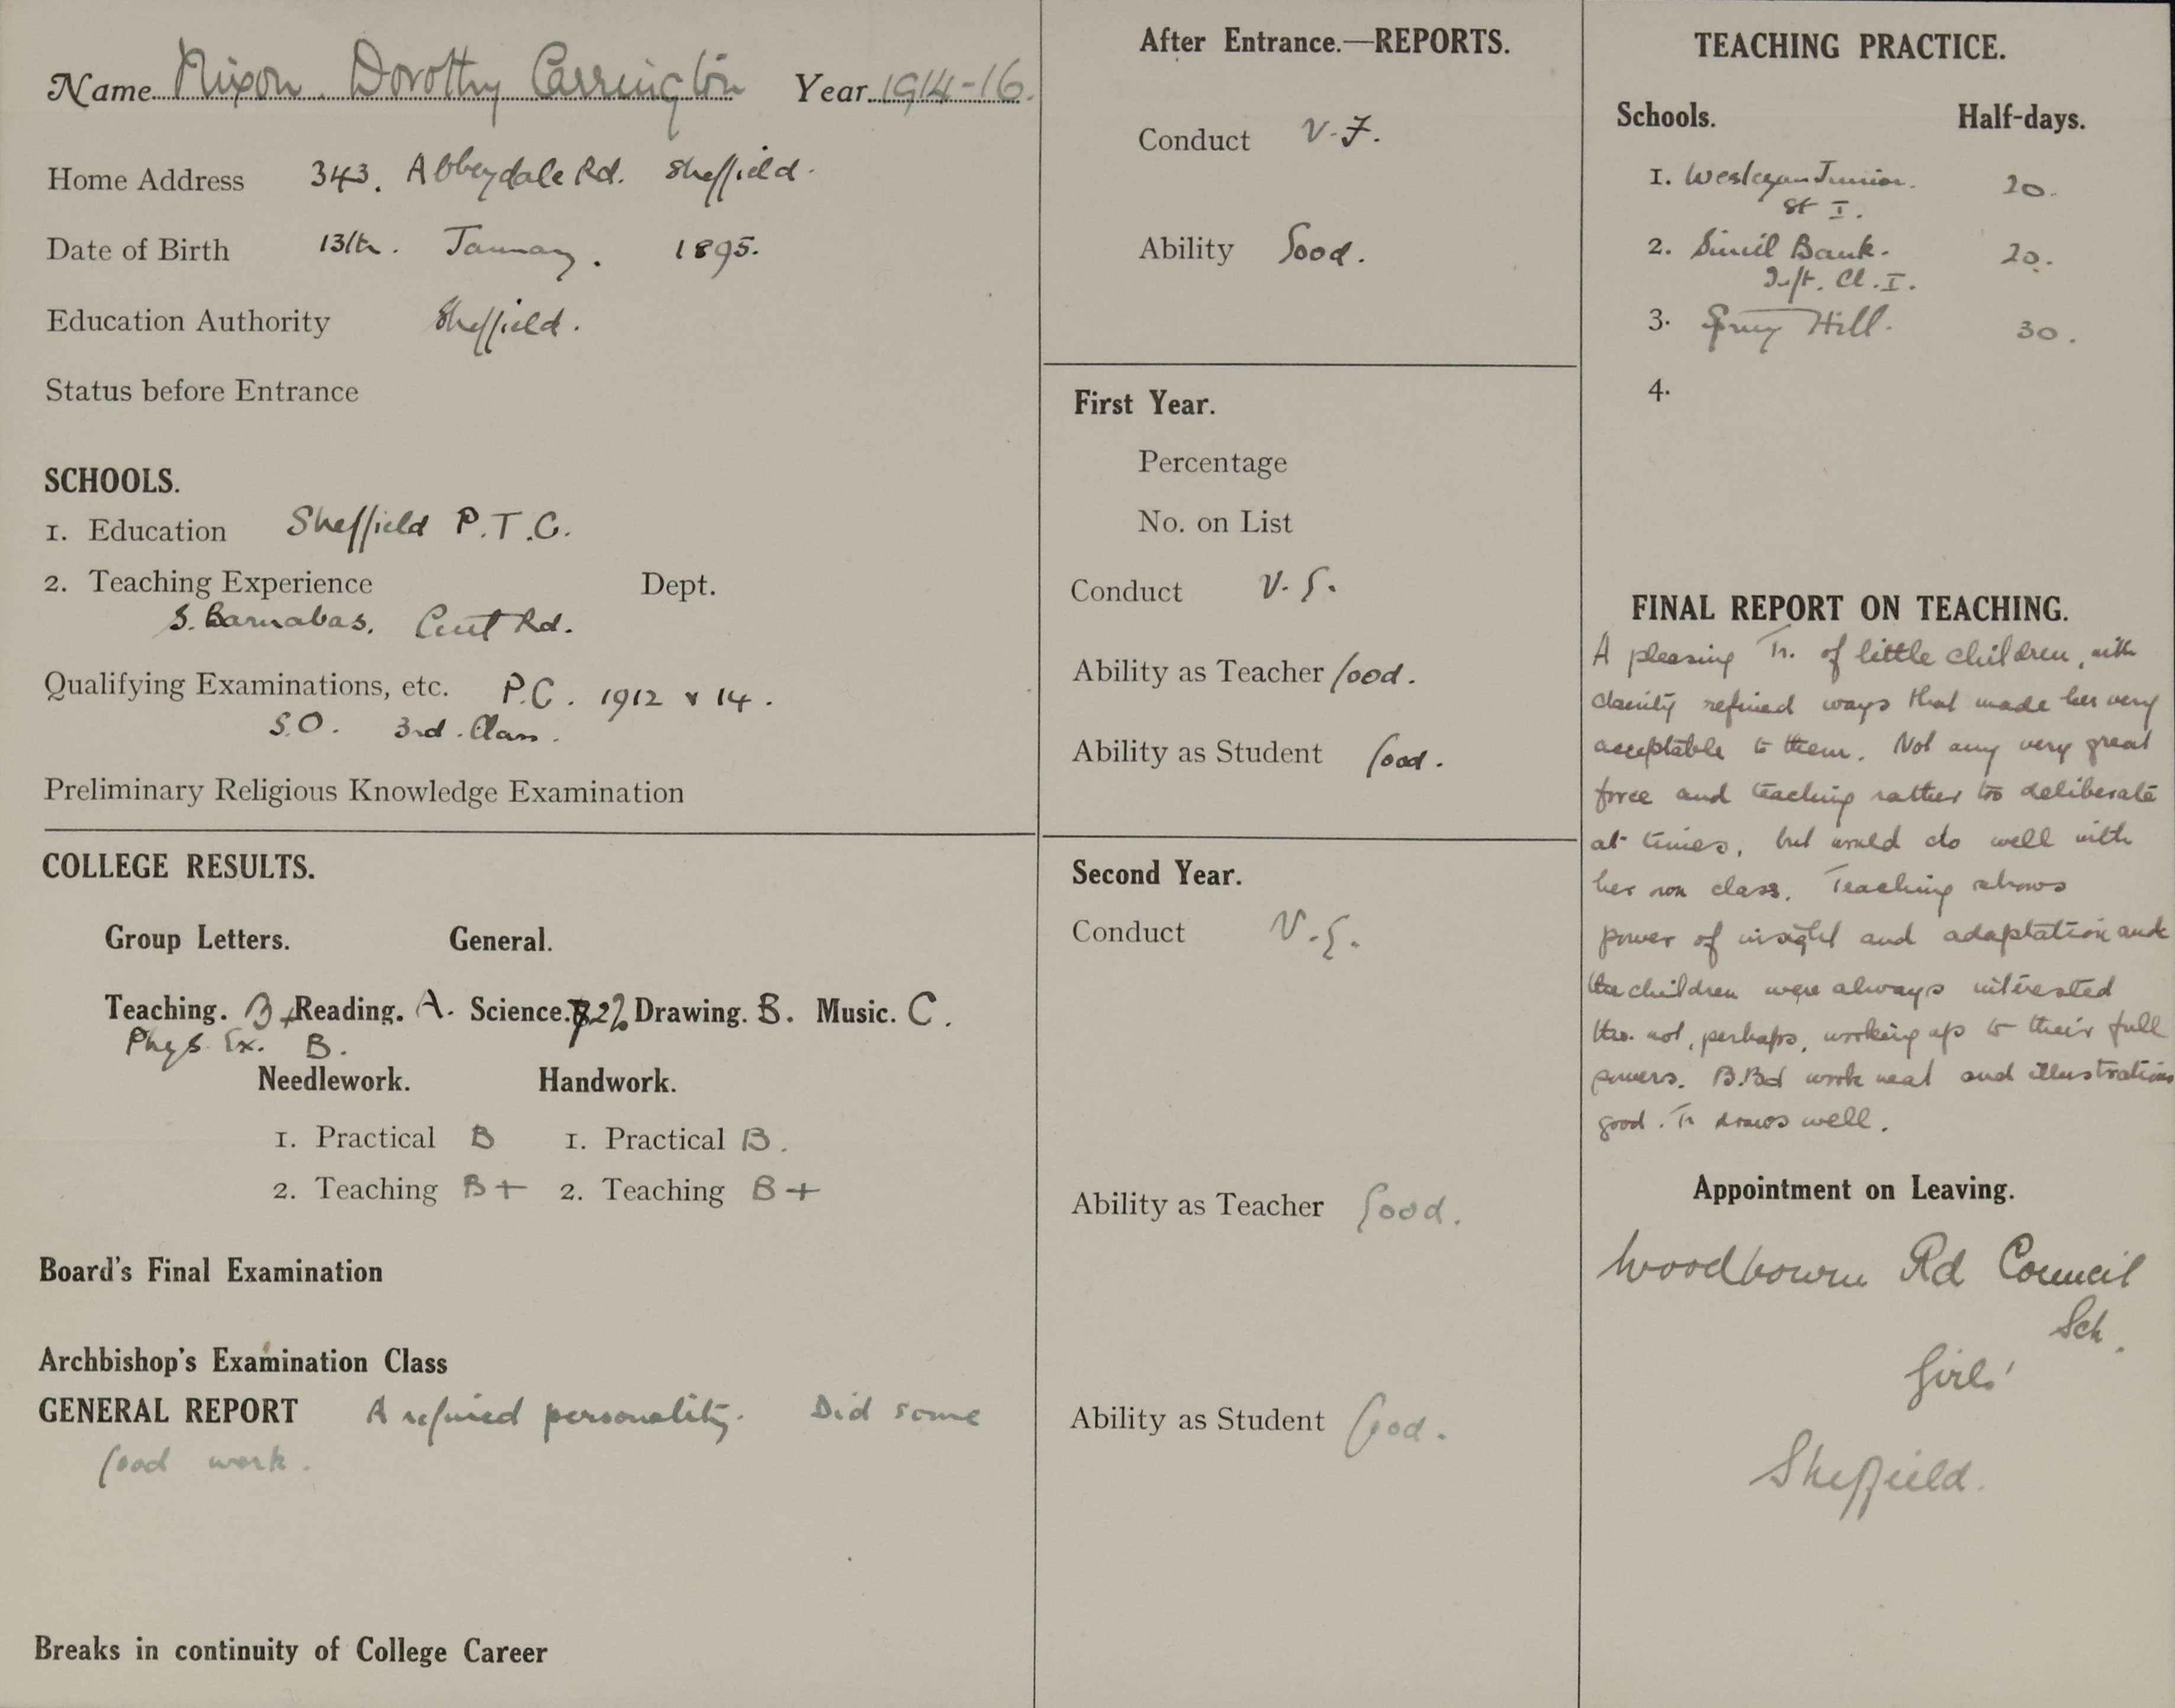 Name Nixon. Dorothy Carrington Year 1914-16.
Home Address 343. Abbeydale Rd. Sheffield.
Date of Birth 13th. January. 1895.
Education Authority Sheffield.
Status before Entrance
SCHOOLS.
1. Education Sheffield P.T.C.
2. Teaching Experience Dept.
S. Barnabas. Rd.
Qualifying Examinations, etc. P.C. 1912 & 14.
S.O. 3rd. Class.
Preliminary Religious Knowledge Examination
COLLEGE RESULTS.
Group Letters. General.
Teaching. B+ Reading. A. Science. Drawing. B. Music. C.
Phys. Ex. B.
Needlework. Handwork.
1. Practical B 1. Practical B.
2. Teaching B+ 2. Teaching B+
Board's Final Examination
Archbishop's Examination Class
GENERAL REPORT A refined personality. Did some
good work.
Breaks in continuity of College Career
After Entrance.—REPORTS.
Conduct V.
Ability Good.
First Year.
Percentage
No. on List
Conduct V.G.
Ability as Teacher Good.
Ability as Student Good.
Second Year.
Conduct V.G.
Ability as Teacher Good.
Ability as Student Good.
TEACHING PRACTICE.
Schools. Half-days.
1. Wesleyan Junior. 20.
St I.
2. Bank. 20.
Inft. Cl. I.
3. Hill. 30.
4.
FINAL REPORT ON TEACHING.
A pleasing Tr. of little children, with
dainty refined ways that made her very
acceptable to them. Not any very great
force and teaching rather too deliberate
at times, but would do well with
her own class. Teaching shows
power of insight and adaptation and
the children were always interested
tho. not, perhaps, working up to their full
powers. B.Bd work neat and illustrations
good. Tr draws well.
Appointment on Leaving.
Woodbourn Rd Council
Sch.
Girls'
Sheffield.